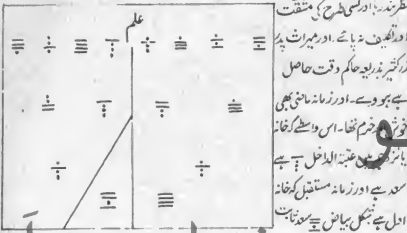 علم
نظر بند رہا اور کسی طرح کی مشقت
اور تکلیف نہ پائے۔ اور میراث پدر
زر کثیر بذریعہ حاکم وقت حاصل
سے ہووے۔ اور زمانہ ماضی بھی
خوش و خرم تھا۔ اس واسطے کہ خانہ
عتبۃ الداخل ہے
سعد ہے اور زمانہ مستقبل کہ خانہ
اول ہے شکل بیاض سعد ثابت